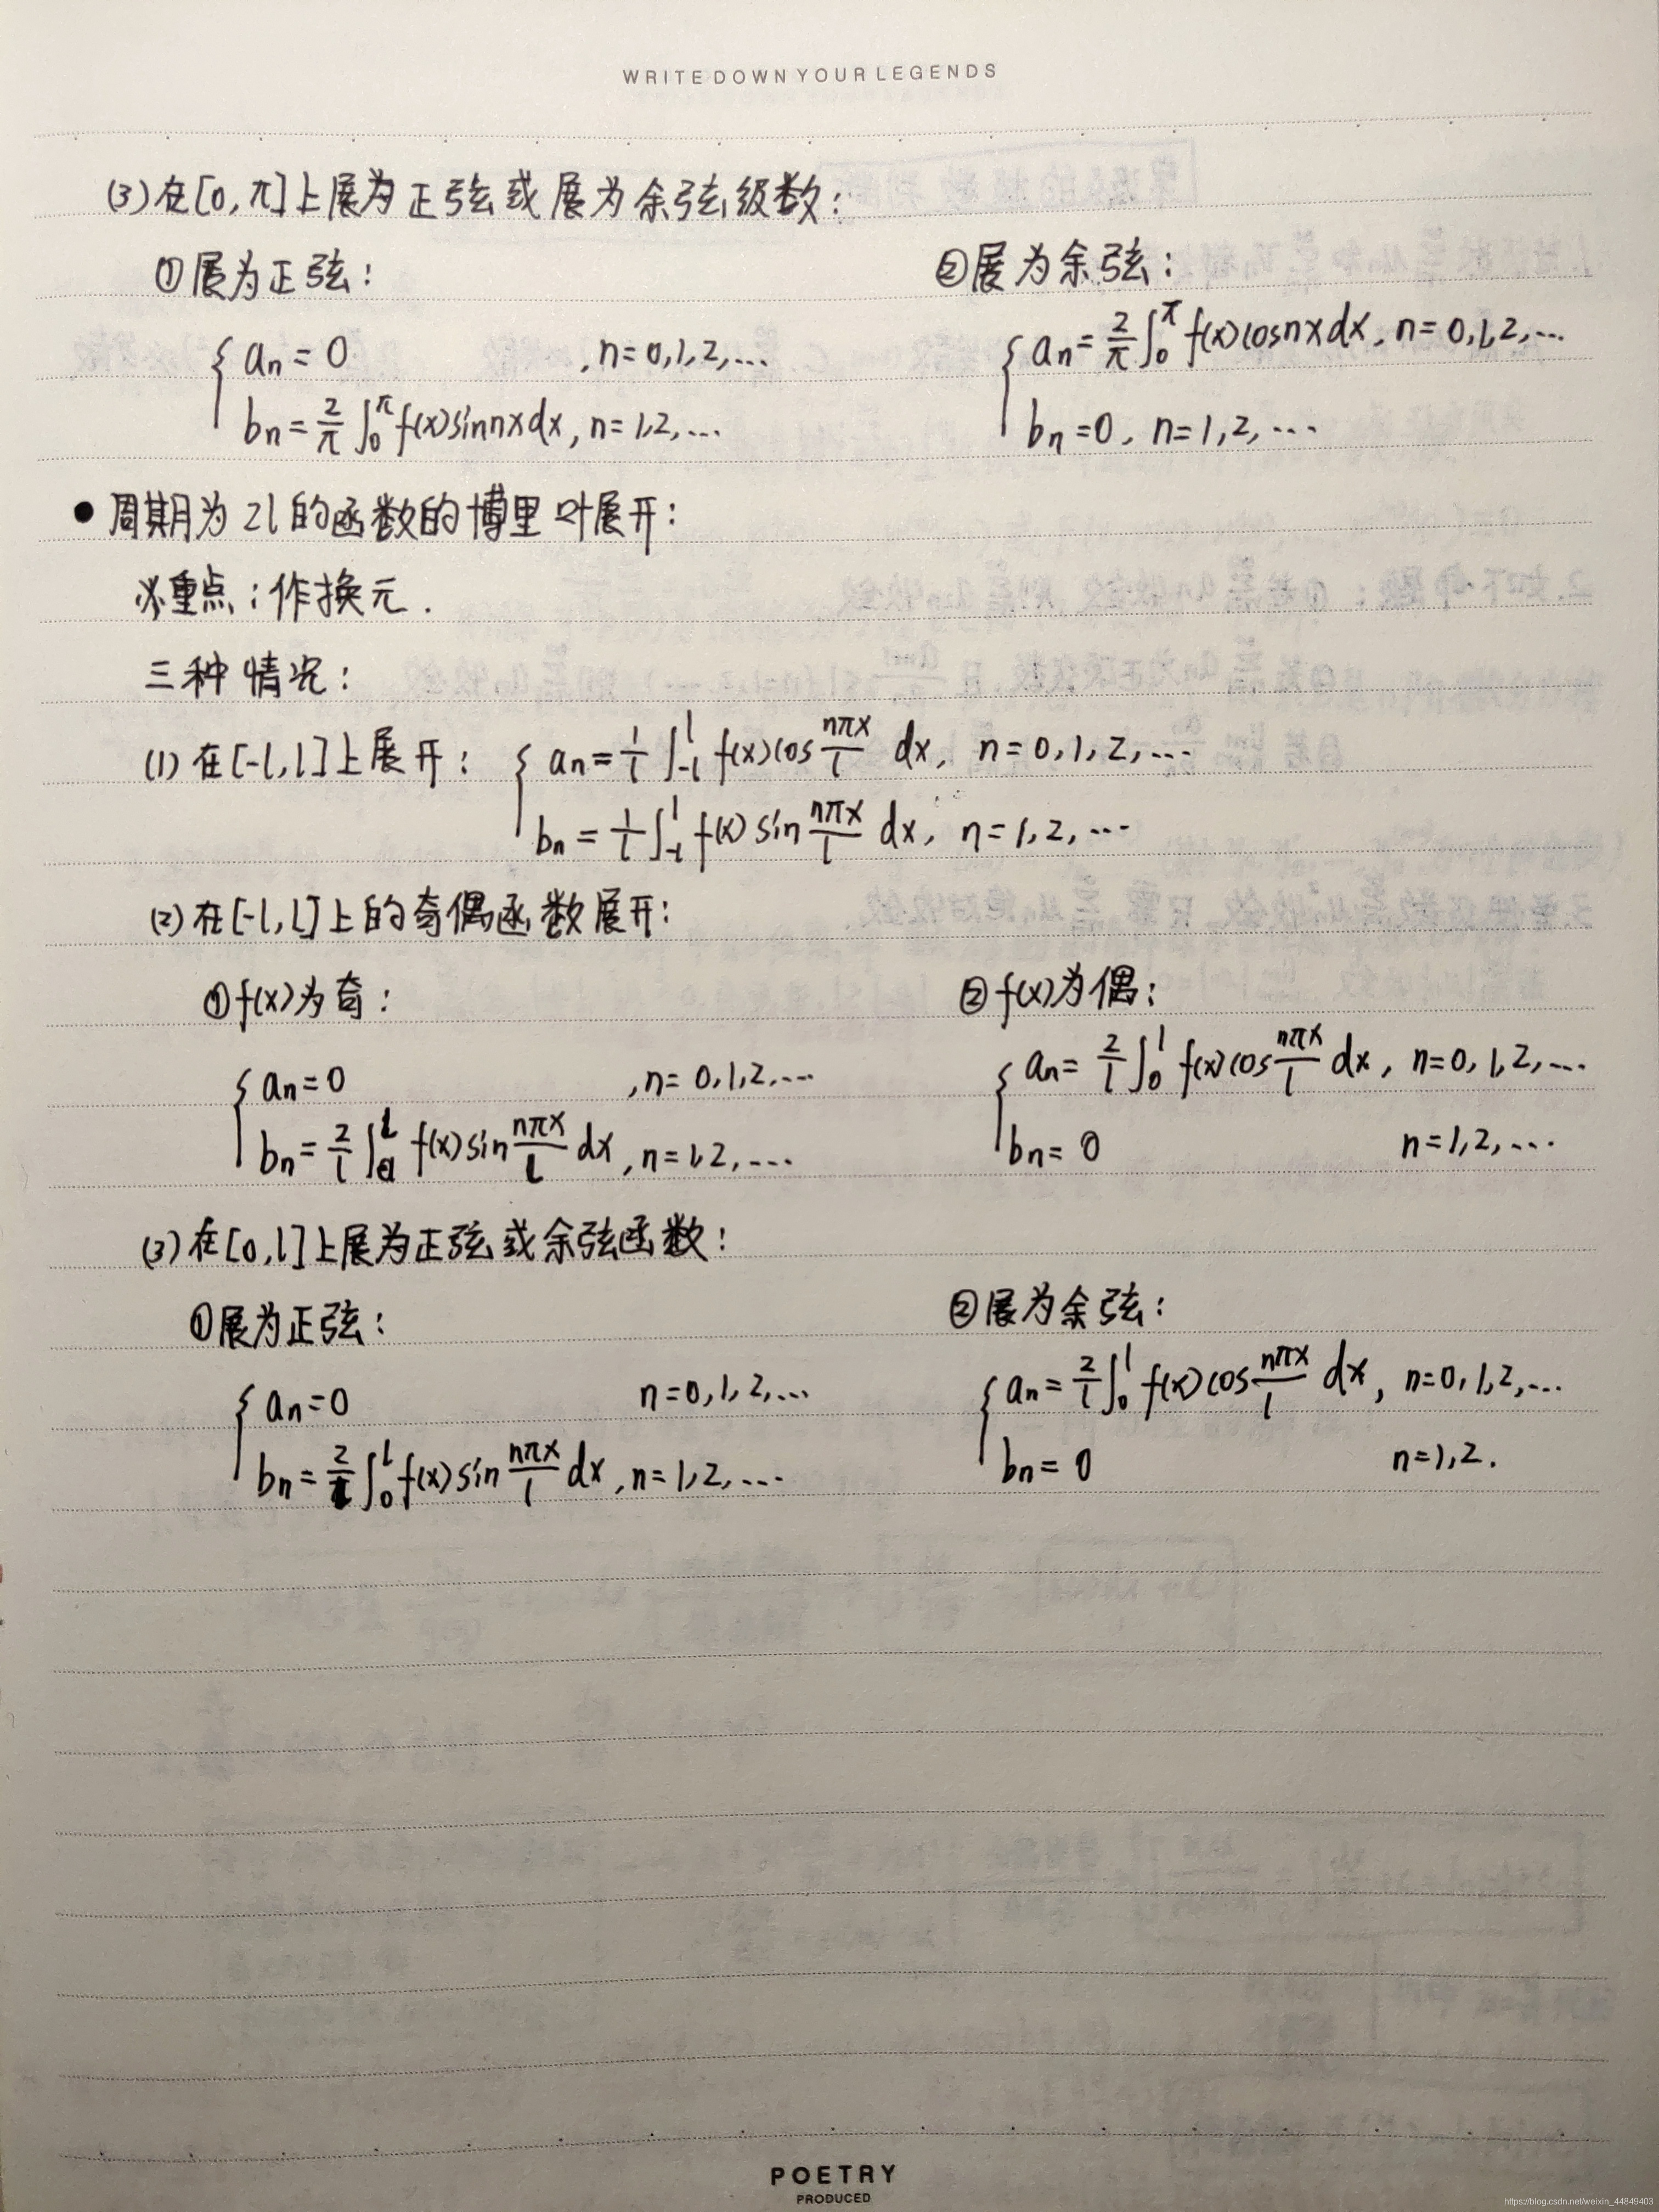 WRITE DOWN YOUR LEGENDS
(3) 在[0, π]上展为正弦或展为余弦级数:
①展为正弦: ②展为余弦:
{ aₙ = 0 , n=0,1,2,... { aₙ = 2/π ∫₀^π f(x)cosnxdx, n=0,1,2,...
bₙ = 2/π ∫₀^π f(x)sinnxdx, n=1,2,... bₙ=0, n=1,2,...
● 周期为2l的函数的博里叶展开:
※重点:作换元.
三种情况:
(1) 在[-l,l]上展开: { aₙ = 1/l ∫₋ₗ^l f(x)cos nπx/l dx, n=0,1,2,...
bₙ = 1/l ∫₋ₗ^l f(x) sin nπx/l dx, n=1,2,...
(2) 在[-l,l]上的奇偶函数展开:
①f(x)为奇: ②f(x)为偶:
{ aₙ=0 , n=0,1,2,... { aₙ = 2/l ∫₀^l f(x)cos nπx/l dx, n=0,1,2,...
bₙ = 2/l ∫₀^l f(x)sin nπx/l dx, n=1,2,... bₙ=0 n=1,2,...
(3) 在[0,l]上展为正弦或余弦函数:
①展为正弦: ②展为余弦:
{ aₙ=0 n=0,1,2,... { aₙ = 2/l ∫₀^l f(x)cos nπx/l dx, n=0,1,2,...
bₙ = 2/l ∫₀^l f(x)sin nπx/l dx, n=1,2,... bₙ=0 n=1,2.
POETRY
PRODUCED
https://blog.csdn.net/weixin_44849403